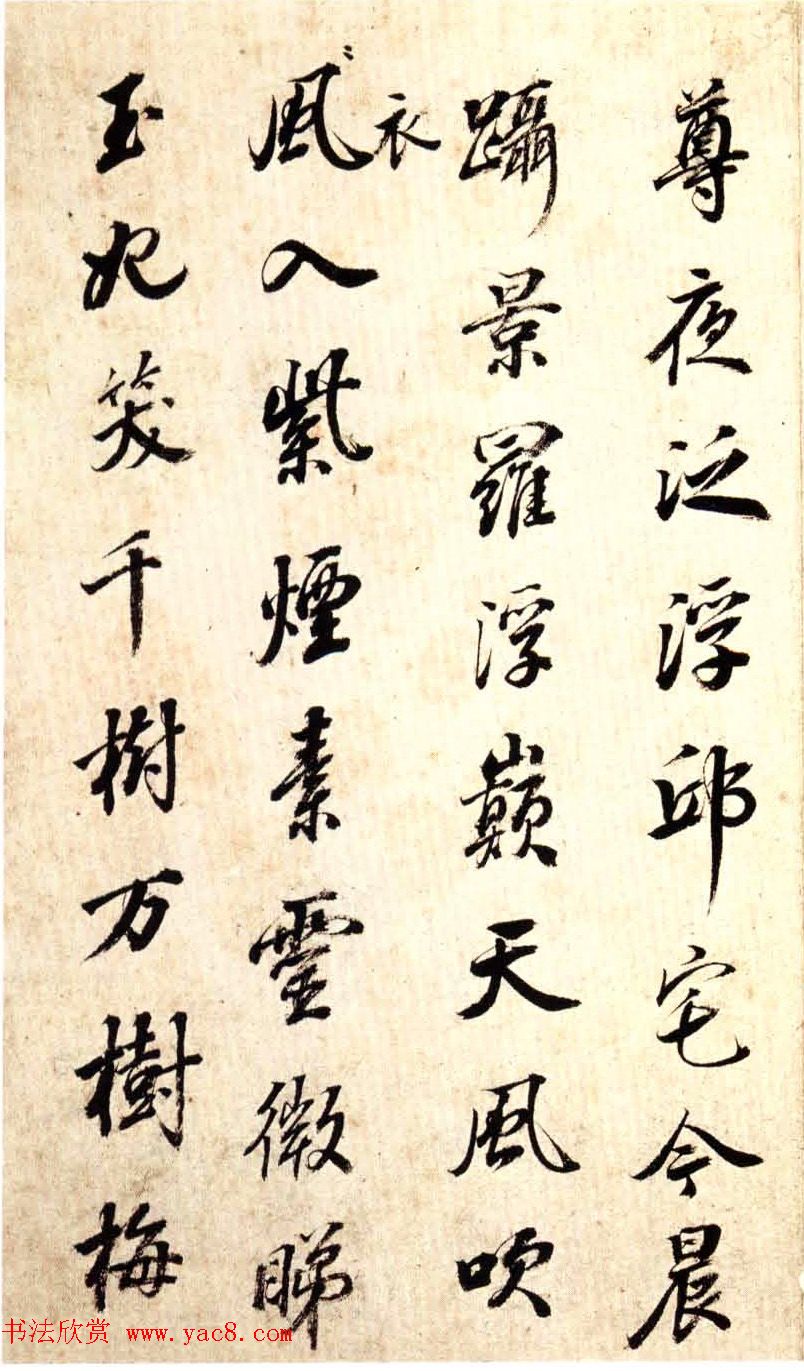 尊夜泛浮邱宅今晨
躡景羅浮巔天風吹
衣
風入紫煙素靈微睇
玉妃笑千樹万樹梅
书法欣赏 www.yac8.com